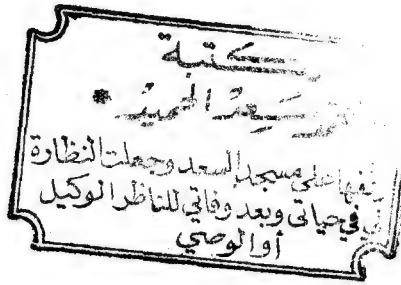 مكتبة
سعد الحميد *
وقفها على مسجد السعد وجعلت النظارة
في حياتي وبعد وفاتي للناظر الوكيل
أو الوصي